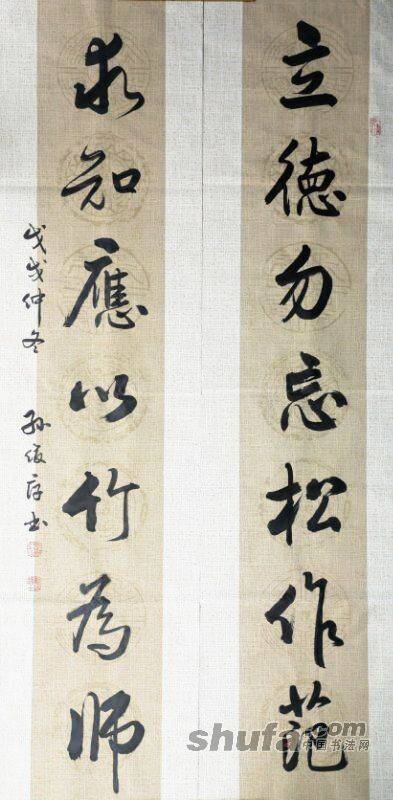 立德勿忘松作范
求知應以竹為師
戊戌仲冬 孙俊存书
shufa.com
中国书法网